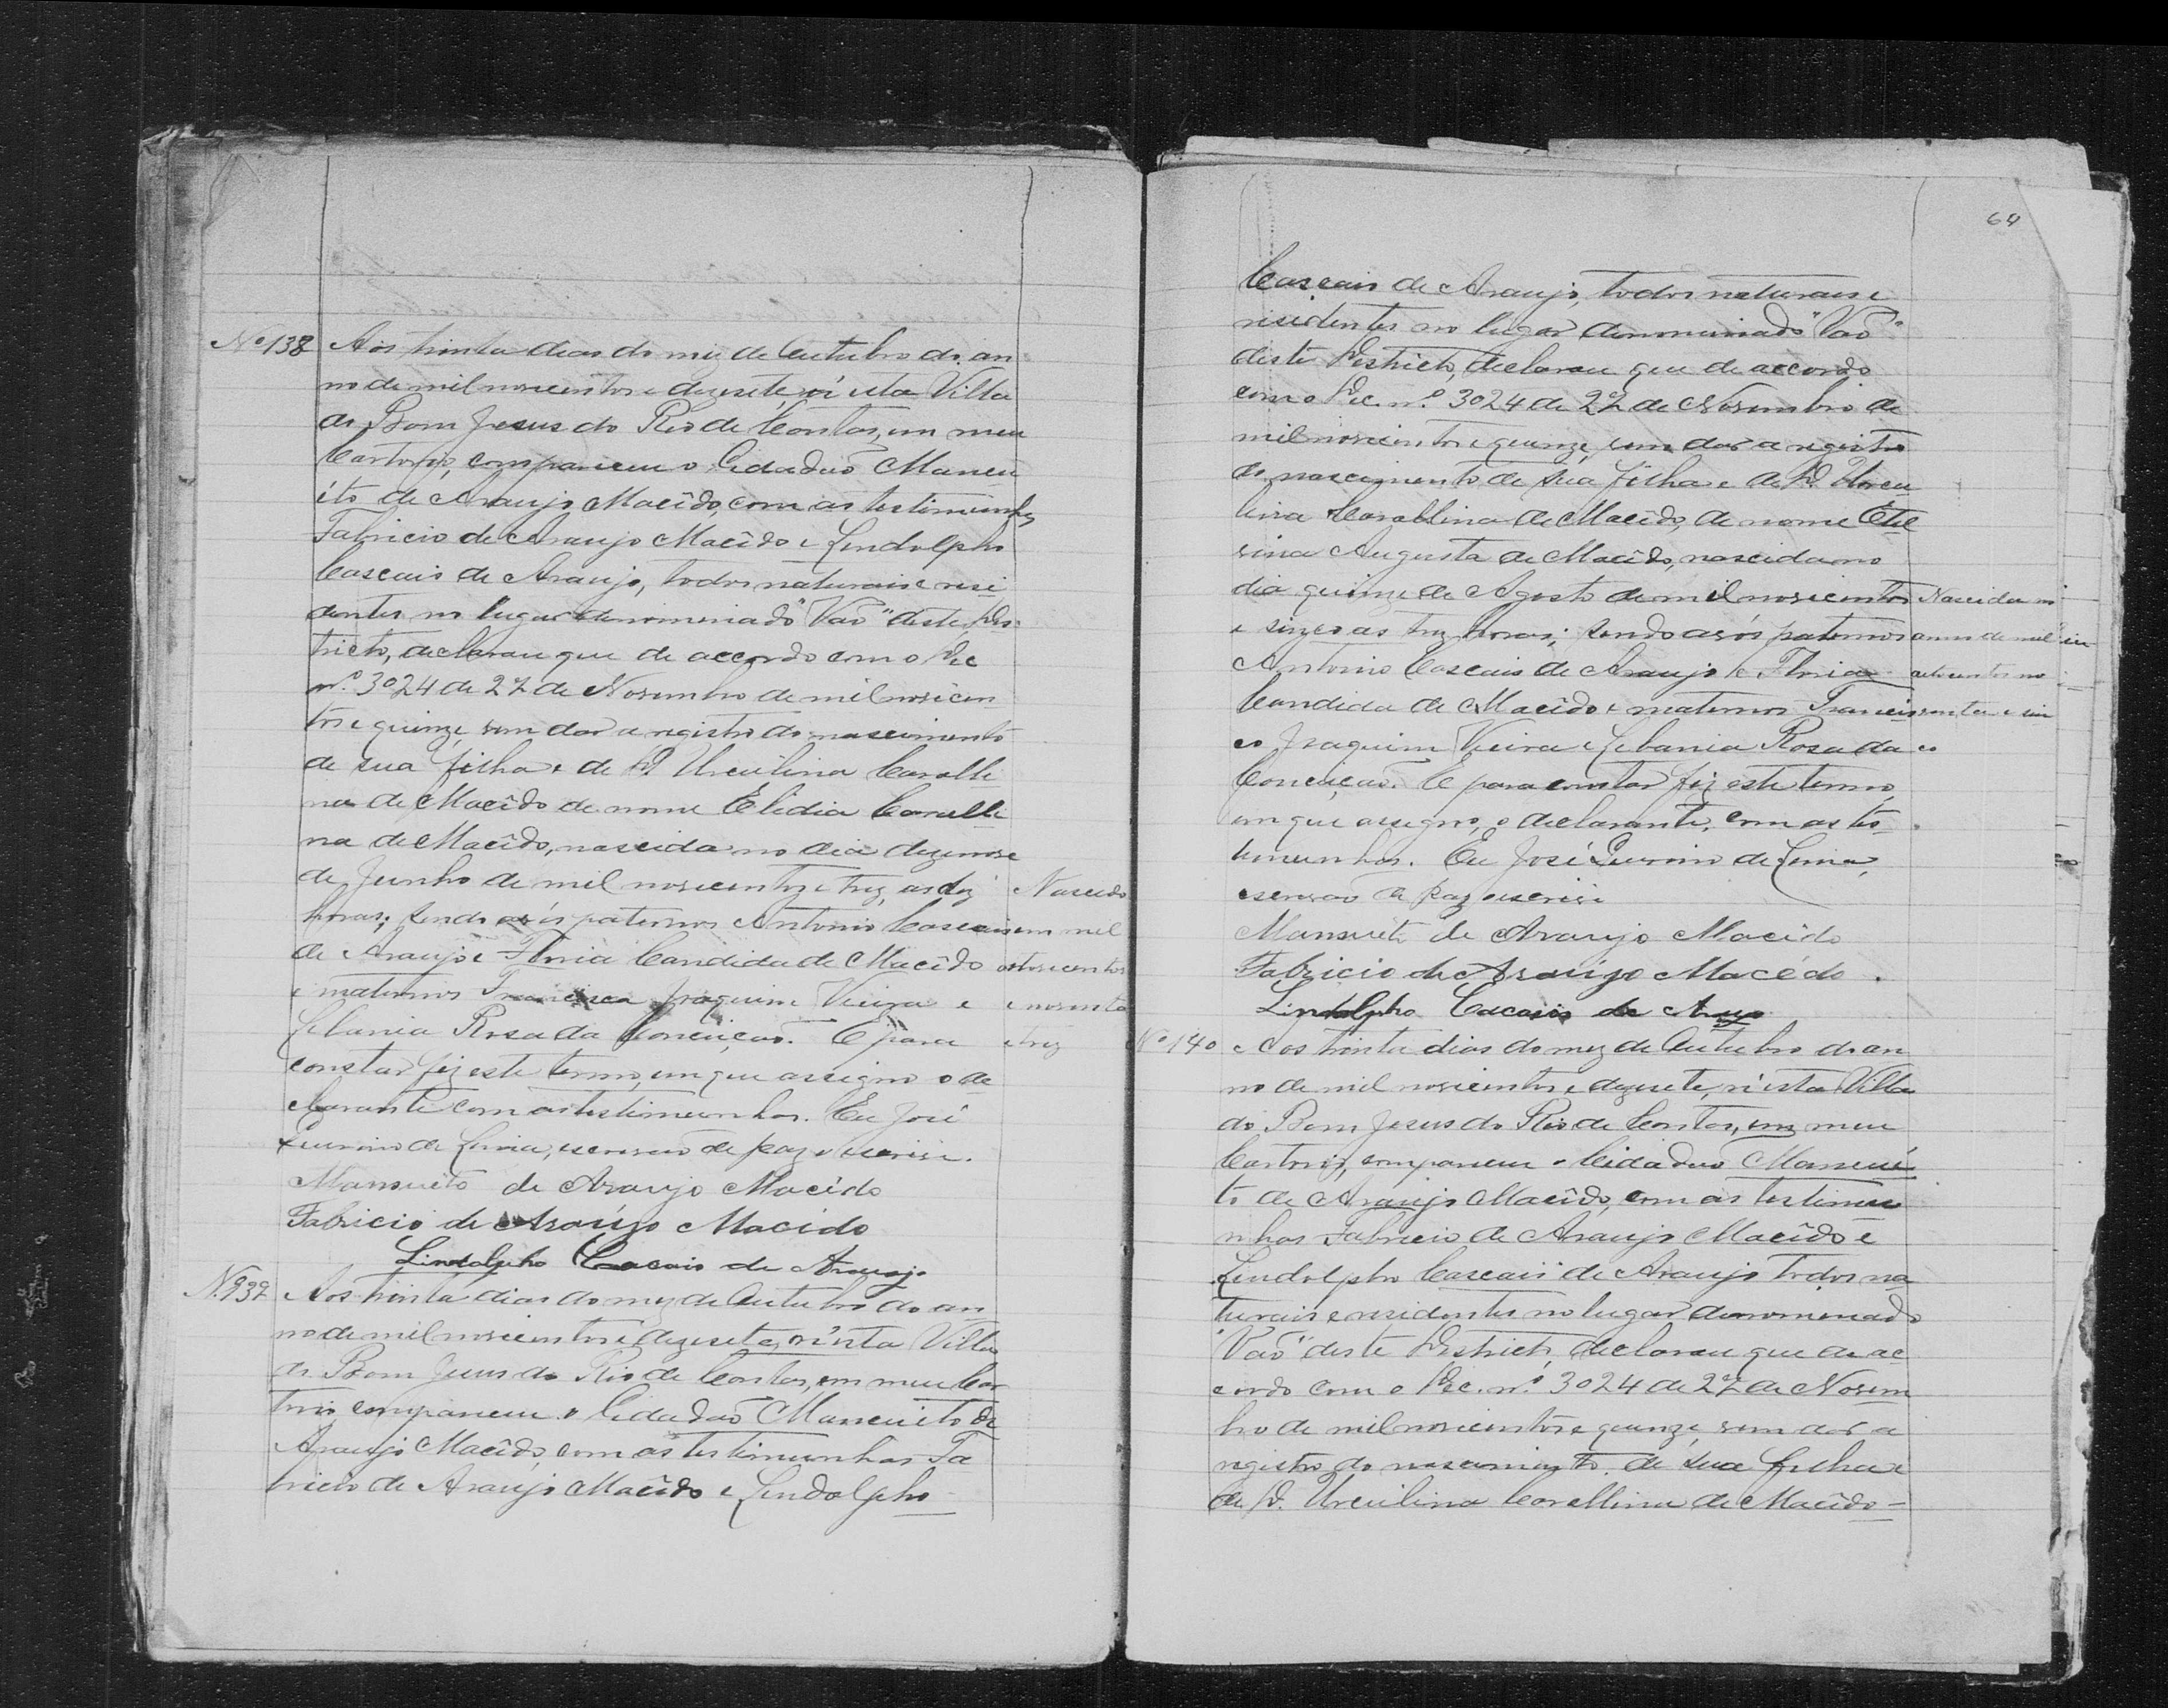 Nº 138 Aos trinta dias do mez de Outubro do an-
no de mil novecentos e dezesete, n'esta Villa
do Bom Jesus do Rio de Contas, em meu
Cartorio, compareceu o Cidadão Mancu
êto de Araujo Macêdo, com as testimunhas
Fabricio de Araujo Macêdo e Lindolpho
Cascais de Araujo, todos naturais e resi
dentes no lugar denominado "Vaõ" deste Des-
tricto, declarou que de accordo com o Dec
nº 3024 de 27 de Novembro de mil novecen
tos e quinze, vem dar a registro do nascimento
de sua filha e de D. Urculina Coralli
na de Macêdo de nome Elidia Coralli
na de Macêdo, nascida no dia dezenove
de Junho de mil novecentos e trez, as dez Nascido
horas; sendo avós paternos Antonio Cascais em mil
de Araujo e Floria Candida de Macêdo oitocentos
e maternos Francisca Joaquim Vieira e e noventa
Libania Rosa da Conceiçaõ. E para e trez
constar fiz este termo, em que assigno o de
clarante com as testimunhas. Eu José
Quirino de Lima, escrivaõ de paz o escrivi.
Mansueto de Araujo Macêdo
Fabricio de Araújo Macêdo
Lindolpho Cascais de Araujo
Aos trinta dias do mez de Outubro do an
no de mil novecentos e dezesete, n'esta Villa
do Bom Jesus do Rio de Contas, em meu Car
torio, compareceu o Cidadaõ Mancuêto de
Araujo Macêdo, com as testimunhas Fa
bricio de Araujo Macêdo e Lindolpho
64
Cascais de Araujo, todos naturais e
residentes no lugar denominado "Vaõ"
deste Destricto, declarou que de accordo
com o Dec. nº 3024 de 27 de Novembro de
mil novecentos e quinze, vem dar a registro
do nascimento de sua filha e de D. Urcu
lina Corallina de Macêdo, de nome Etel
vina Augusta de Macêdo, nascida no
dia quinze de Agosto de mil novecentos Nascida no
e sinco as trez horas; sendo avós paternos anno de mil
Antonio Cascais de Araujo e Floria oitocentos no
Candida de Macêdo e maternos Francis venta e sin
co Joaquim Vieira e Libania Rosa da co
Conceiçaõ. E para constar fiz este termo
em que assigno, o declarante, com as tes
timunhas. Eu José Quirino de Lima,
escrivaõ de paz o escrivi
Mansueto de Araujo Macêdo
Fabricio de Araújo Macêdo.
Lindolpho Cacais de Araujo
Nº 140 Aos trinta dias do mez de Outubro do an
no de mil novecentos e dezesete, n'esta Villa
do Bom Jesus do Rio de Contas, em meu
Cartorio, compareceu o Cidadaõ Mancuê
to de Araujo Macêdo, com as testimu
nhas Fabricio de Araujo Macêdo e
Lindolpho Cascais de Araujo todos na
turais e residentes no lugar denominado
"Vaõ" deste Destricto, declarou que de ac
cordo com o Dec. nº 3024 de 27 de Novem
bro de mil novecentos e quinze, vem dar a
registro do nascimento de sua filha e
de D. Urculina Corallina de Macêdo-